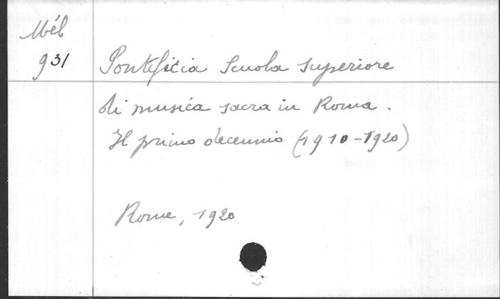 Mél
931
Pontificia Scuola superiore
di musica sacra in Roma.
Il primo decennio (1910-1920)
Rome, 1920